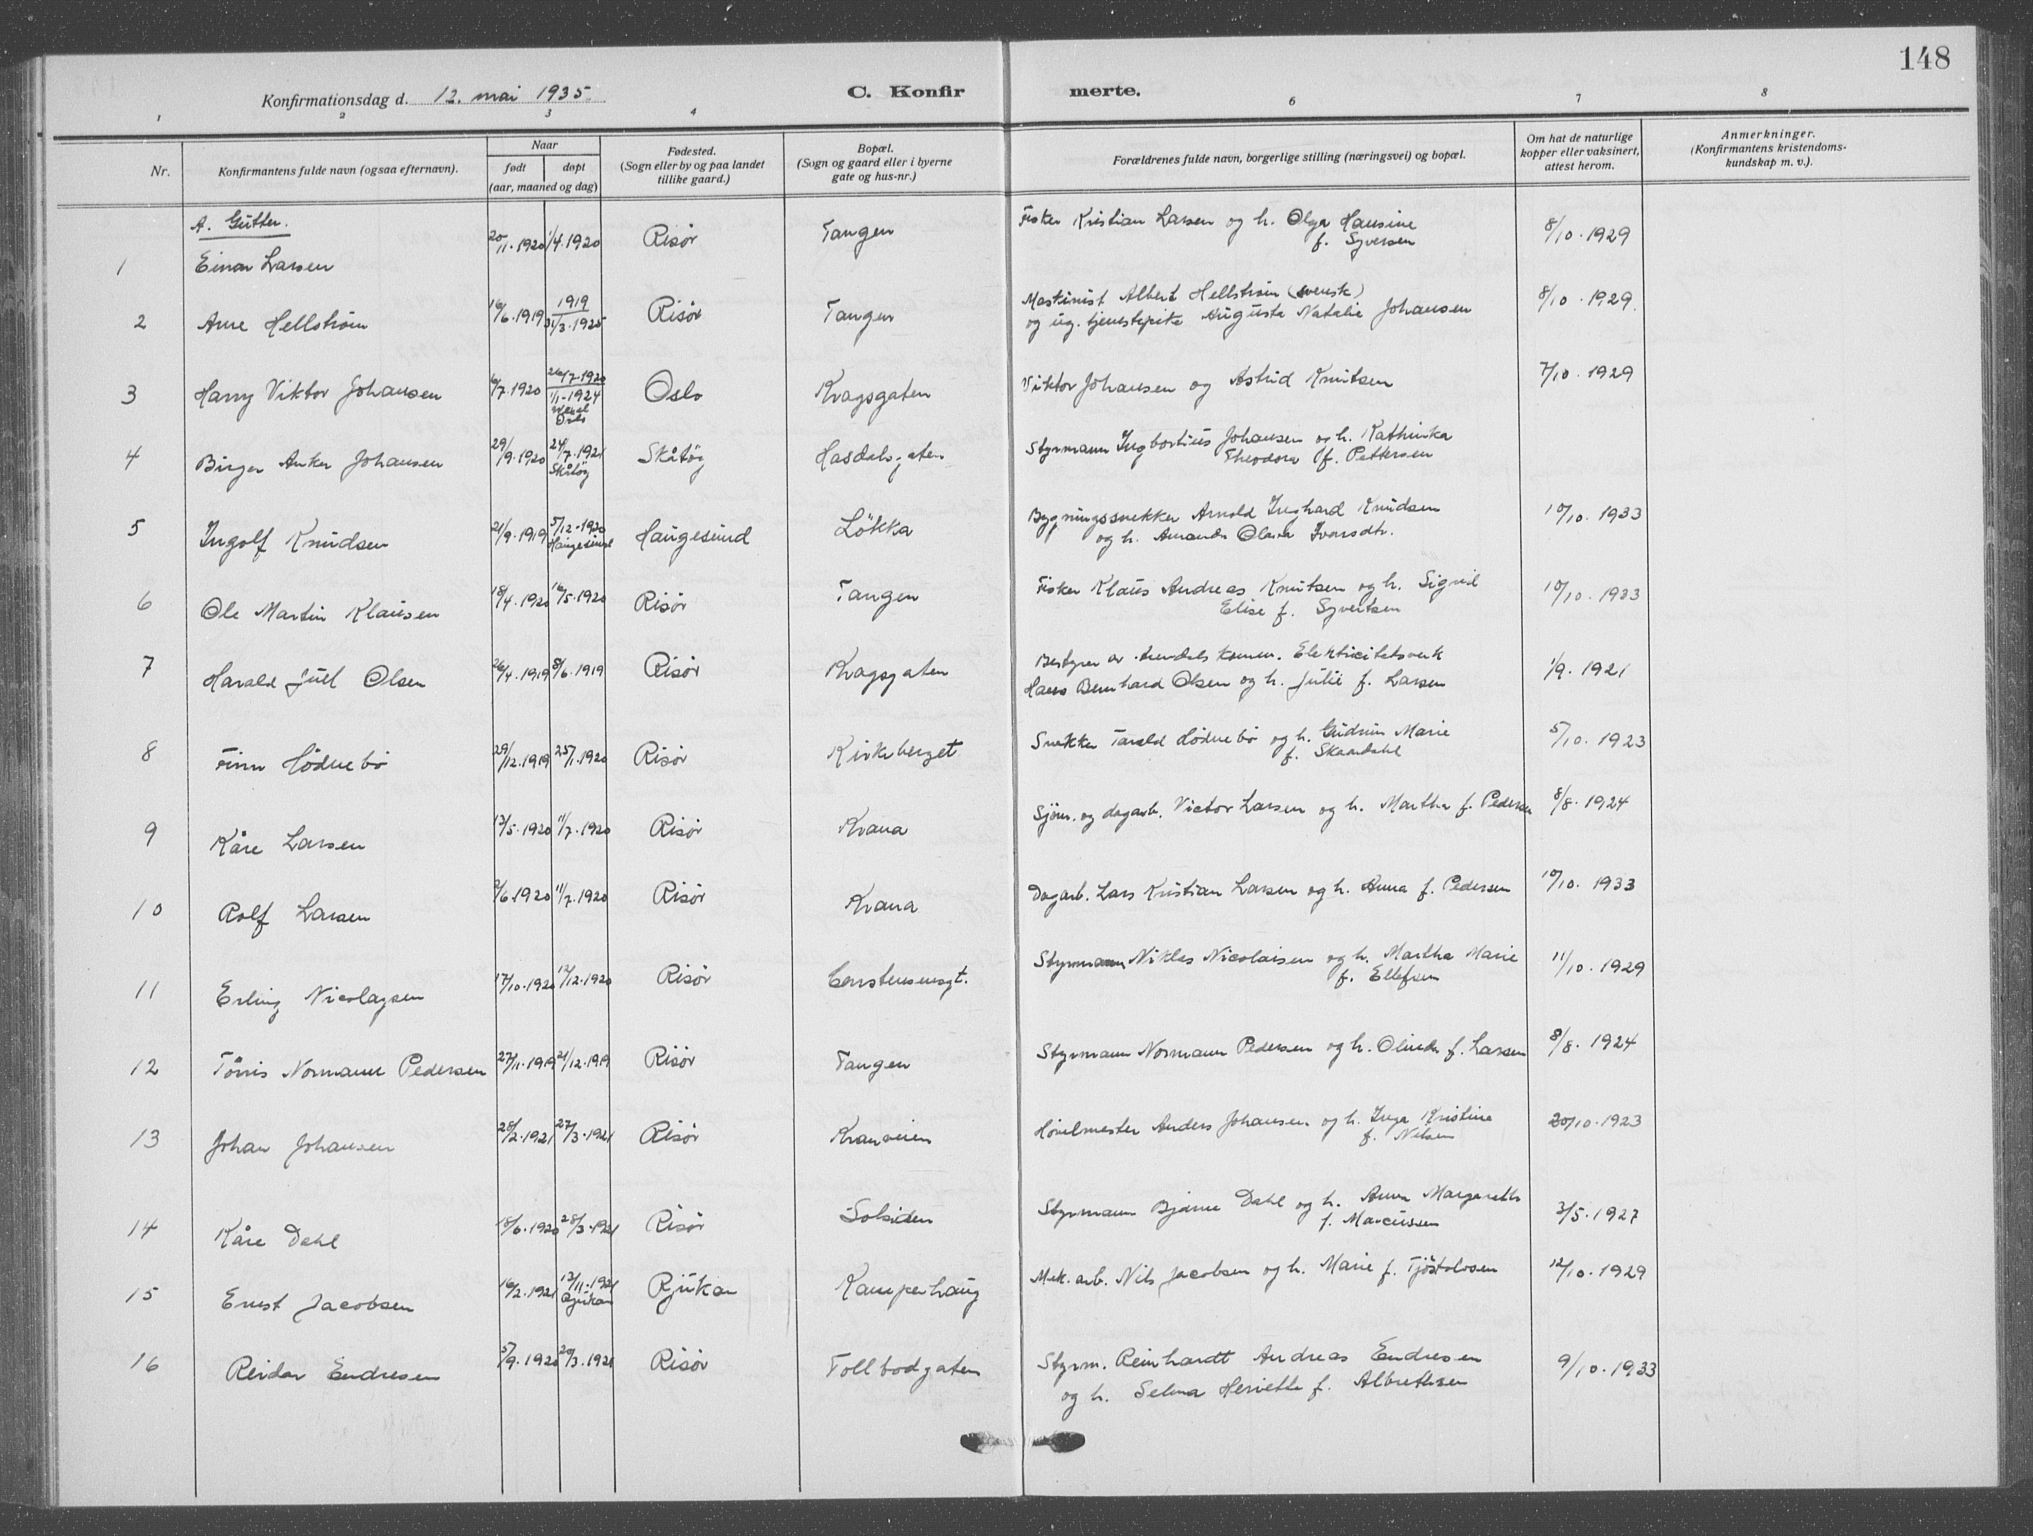 148
Konfirmationsdag d. 12. mai 1935.
C. Konfirmerte.
1 2 3 4 6 7 8
Nr.
Konfirmantens fulde navn (ogsaa efternavn).
Naar
født døpt
(aar, maaned og dag)
Fødested.
(Sogn eller by og paa landet
tillike gaard.)
Bopæl.
(Sogn og gaard eller i byerne
gate og hus-nr.)
Forældrenes fulde navn, borgerlige stilling (næringsvei) og bopæl.
Om hat de naturlige
kopper eller vaksinert,
attest herom.
Anmerkninger.
(Konfirmantens kristendoms-
kundskap m. v.).
A. Gutter.
1 Einar Larsen 20/11.1920 1/4.1920 Risør Tangen Fisker Kristian Larsen og h. Olga Hansine 8/10.1929
f. Syversen
2 Arne Hellstrøm 16/6.1919 1919 Risør Tangen Maskinist Albert Hellstrøm (svensk) 8/10.1929
31/3.1925 og ug. tjenestepike Augusta Natalie Johansen
3 Harry Viktor Johansen 6/7.1920 26/7.1920 Oslo Kragsgaten Viktor Johansen og Astrid Knutsen 7/10.1929
1/1-1924
Oslo
4 Birger Anker Johansen 29/9.1920 24/7.1921 Skåtøy Hasdalsgaten Styrmann Ingbortius Johansen og h. Kathinka
Skåtøy Theodora f. Pettersen
5 Ingolf Knudsen 21/9.1919 5/12-1920 Haugesund Løkka Bygningssnekker Arnold Inghard Knudsen 10/10.1933
Haugesund og h. Amanda Olava Ivarsdtr.
6 Ole Martin Klausen 18/4.1920 16/5.1920 Risør Tangen Fisker Klaus Andreas Knutsen og h. Sigrid 10/10.1933
Elise f. Syvertsen
7 Harald Juel Olsen 26/4.1919 8/6.1919 Risør Kragsgaten Bestyrer av Arendals komm. Elektricitetsverk 1/9.1921
Hans Bernhard Olsen og h. Julie f. Larsen
8 Finn Hødnebø 29/12.1919 25/1.1920 Risør Kirkeberget Snekker Tarald Hødnebø og h. Gudrun Marie 5/10.1923
f. Skaardahl
9 Kåre Larsen 13/5.1920 11/7.1920 Risør Krana Sjøm. og dagarb. Victor Larsen og h. Martha f. Pedersen 8/8.1924
10 Rolf Larsen 2/6.1920 11/7.1920 Risør Krana Dagarb. Lars Kristian Larsen og h. Anna f. Pedersen 10/10.1933
11 Erling Nicolaysen 17/10.1920 12/12.1920 Risør Carstensensgt. Styrmann Niklas Nicolaisen og h. Martha Marie 11/10.1929
f. Ellefsen
12 Tønnis Normann Pedersen 27/11.1919 21/12.1919 Risør Tangen Styrmann Normann Pedersen og h. Olinda f. Larsen 8/8.1924
13 Johan Johansen 28/2.1921 27/3.1921 Risør Kranveien Høvelmester Anders Johansen og h. Inga Kristine 20/10.1923
f. Nilsen
14 Kåre Dahl 18/6.1920 28/3.1921 Risør Solsiden Styrmann Bjarne Dahl og h. Anna Margareth 3/5.1927
f. Marcussen
15 Ernst Jacobsen 16/2.1921 13/11.1921 Rjukan Kamperhaug Mek. arb. Nils Jacobsen og h. Marie f. Tjøstolvsen 12/10.1929
Rjukan
16 Reidar Endresen 5/9.1920 20/3.1921 Risør Tollbodgaten Styrm. Reinhardt Andreas Endresen 9/10.1933
og h. Selma Henriette f. Albrethsen